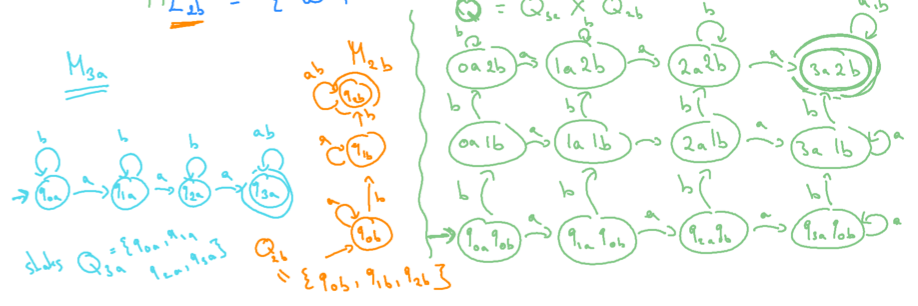 L2b = { w
Q = Q3a x Q2b
M3a
M2b
b
b
b
ab
q0a
a
q1a
a
q2a
a
q3a
states Q3a = {q0a, q1a
q2a, q3a}
ab
q2b
b
a
q1b
b
a
q0b
Q2b
= {q0b, q1b, q2b}
b
b
b
a,b
0a2b
a
1a2b
a
2a2b
a
3a2b
b
b
b
b
0a1b
a
1a1b
2a1b
a
3a1b
a
b
b
b
b
q0a q0b
a
q1a q0b
a
q2a q0b
a
q3a q0b
a